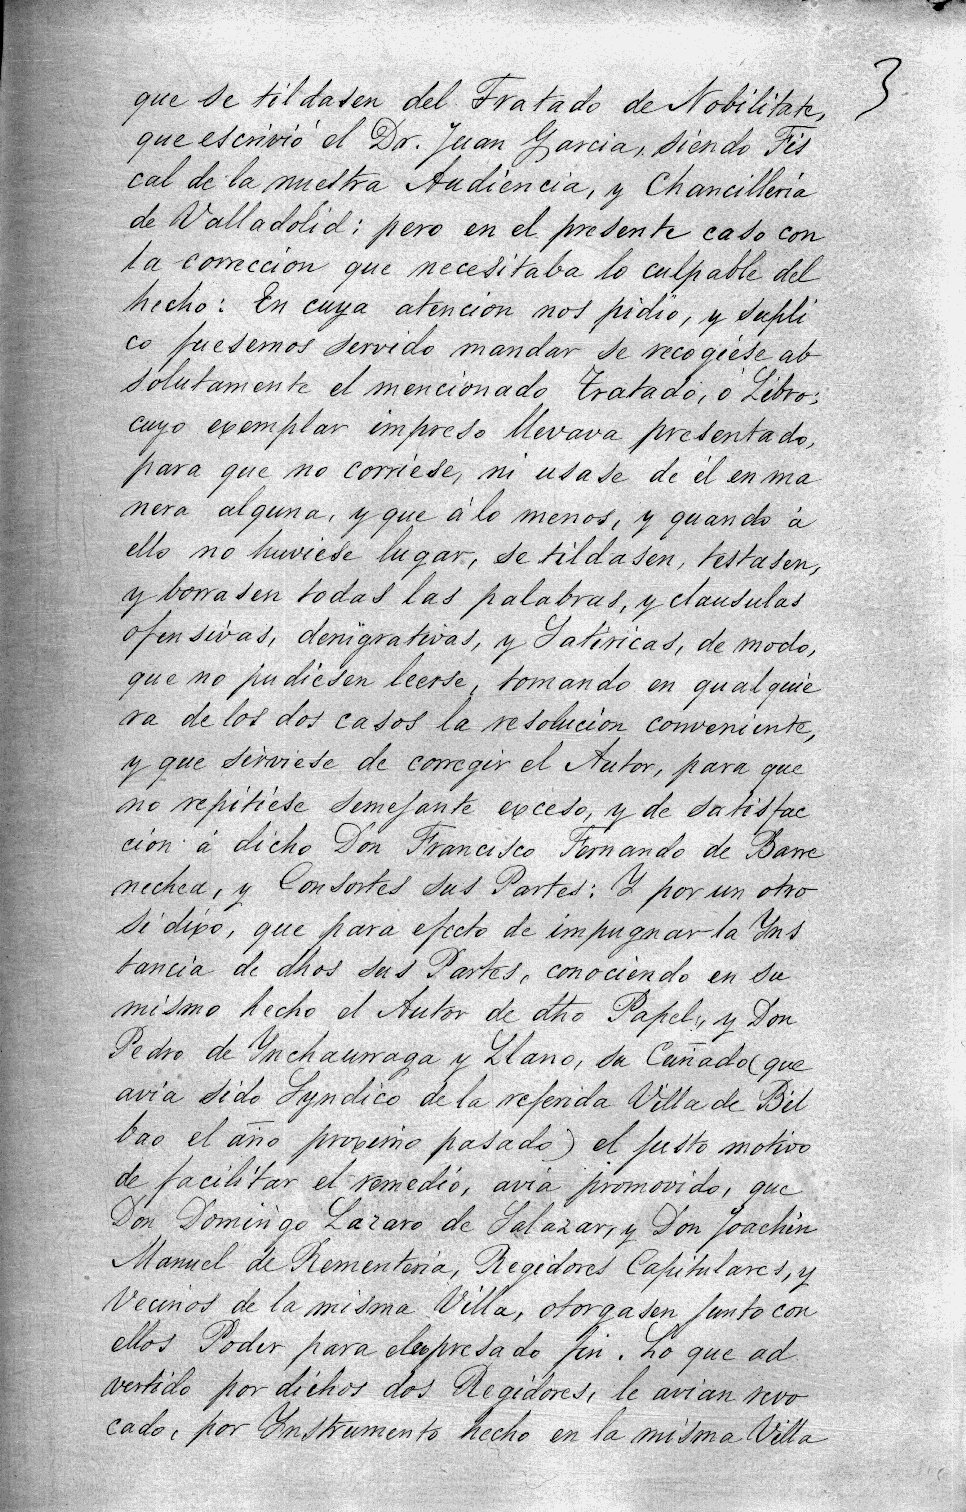 3
que se tildasen del Tratado de Nobilitate,
que escrivió el Dr. Juan Garcia, siendo Fis
cal de la nuestra Audiencia, y Chancilleria
de Valladolid: pero en el presente caso con
la correccion que necesitaba lo culpable del
hecho: En cuya atencion nos pidio, y supli
co fuesemos servido mandar se recogiese ab
solutamente el mencionado Tratado, ó Libro;
cuyo exemplar impreso llevava presentado,
para que no corriese, ni usase de él en ma
nera alguna, y que á lo menos, y quando á
ello no huviese lugar, se tildasen, testasen,
y borrasen todas las palabras, y clausulas
ofensivas, denigrativas, y Satiricas, de modo,
que no pudiesen leerse, tomando en qualquie
ra de los dos casos la resolucion conveniente,
y que sirviese de corregir el Autor, para que
no repitiese semejante exceso, y de satisfac
cion á dicho Don Francisco Fernando de Barre
nechea, y Consortes sus Partes: Y por un otro
si dixo, que para efecto de impugnar la Yns
tancia de dhos sus Partes, conociendo en su
mismo hecho el Autor de dho Papel, y Don
Pedro de Ynchaurraga y Llano, su Cuñado (que
avia sido Syndico de la referida Villa de Bil
bao el año proximo pasado) el justo motivo
de facilitar el remedio, avia promovido, que
Don Domingo Lazaro de Salazar, y Don Joachin
Manuel de Rementeria, Regidores Capitulares, y
Vecinos de la misma Villa, otorgasen junto con
ellos Poder para el expresado fin. Lo que ad
vertido por dichos dos Regidores, le avian revo
cado, por Ynstrumento hecho en la misma Villa